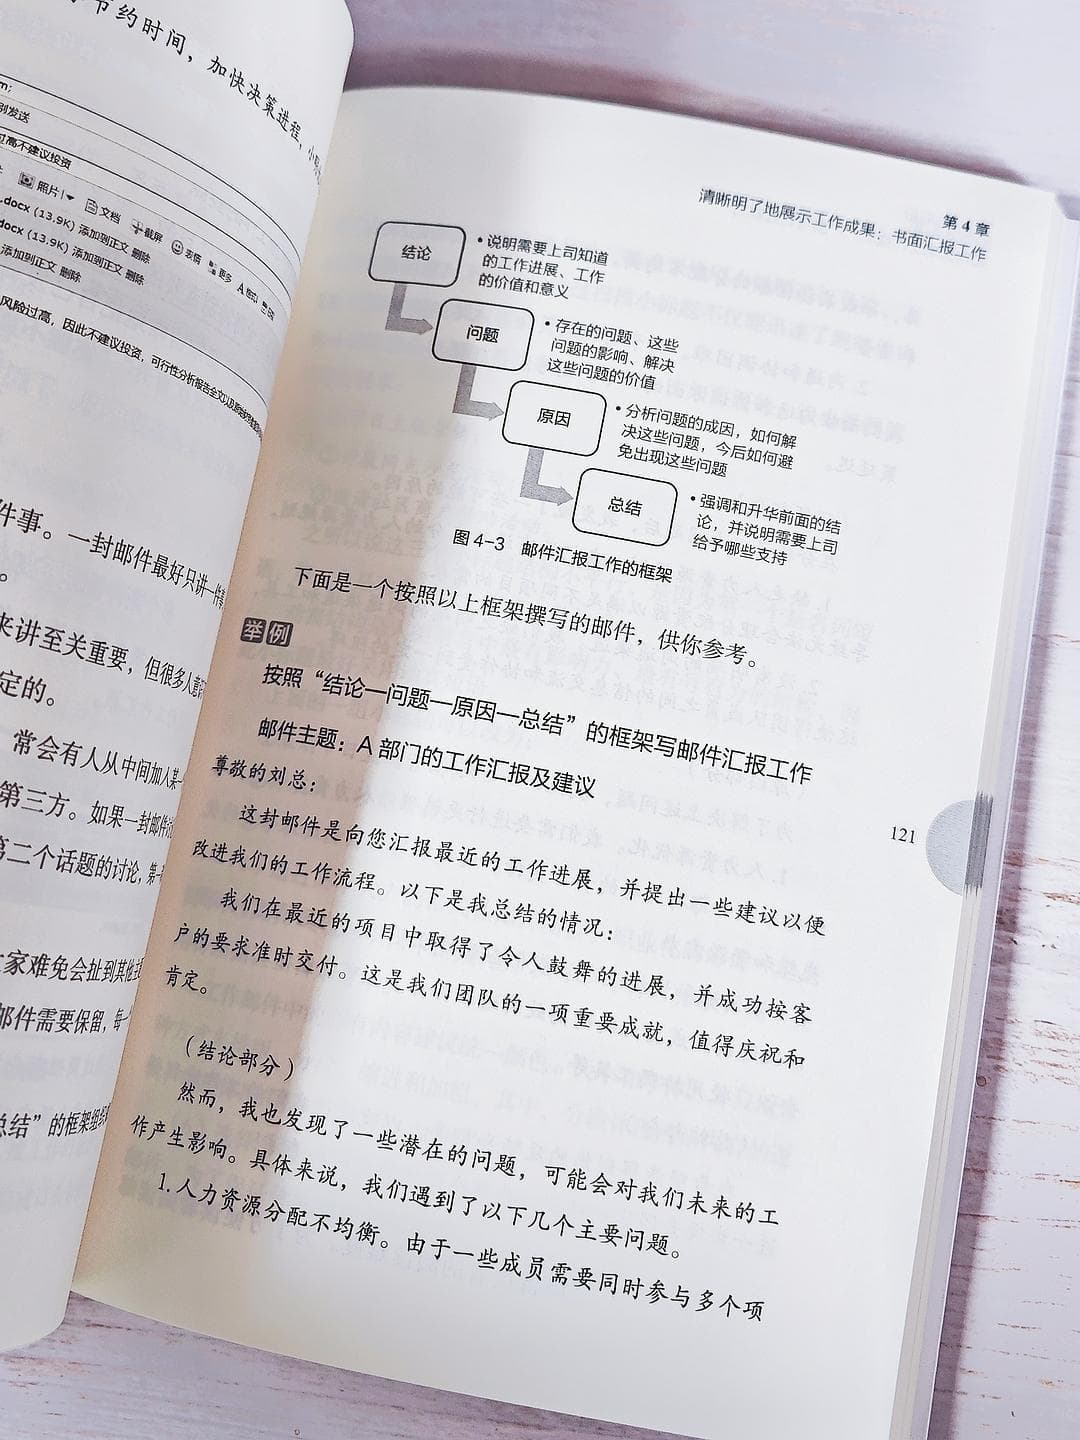 节约时间，加快决策进程，小
别发送
过高不建议投资
照片 文档 截屏 表情 更多 A 格式
.docx (13.9K) 添加到正文 删除
docx (13.9K) 添加到正文 删除
添加到正文 删除
风险过高，因此不建议投资，可行性分析报告全文以及
件事。一封邮件最好只讲一件事
。
来讲至关重要，但很多人意识
定的。
常会有人从中间加入某
第三方。如果一封邮件
第二个话题的讨论，第
大家难免会扯到其他
邮件需要保留，每
总结”的框架组织
第 4 章
清晰明了地展示工作成果：书面汇报工作
结论
• 说明需要上司知道
的工作进展、工作
的价值和意义
问题
• 存在的问题、这些
问题的影响、解决
这些问题的价值
原因
• 分析问题的成因，如何解
决这些问题，今后如何避
免出现这些问题
总结
• 强调和升华前面的结
论，并说明需要上司
给予哪些支持
图 4-3 邮件汇报工作的框架
下面是一个按照以上框架撰写的邮件，供你参考。
举例
按照“结论—问题—原因—总结”的框架写邮件汇报工作
邮件主题：A 部门的工作汇报及建议
尊敬的刘总：
这封邮件是向您汇报最近的工作进展，并提出一些建议以便
改进我们的工作流程。以下是我总结的情况：
我们在最近的项目中取得了令人鼓舞的进展，并成功按客
户的要求准时交付。这是我们团队的一项重要成就，值得庆祝和
肯定。
（结论部分）
然而，我也发现了一些潜在的问题，可能会对我们未来的工
作产生影响。具体来说，我们遇到了以下几个主要问题。
1. 人力资源分配不均衡。由于一些成员需要同时参与多个项
121